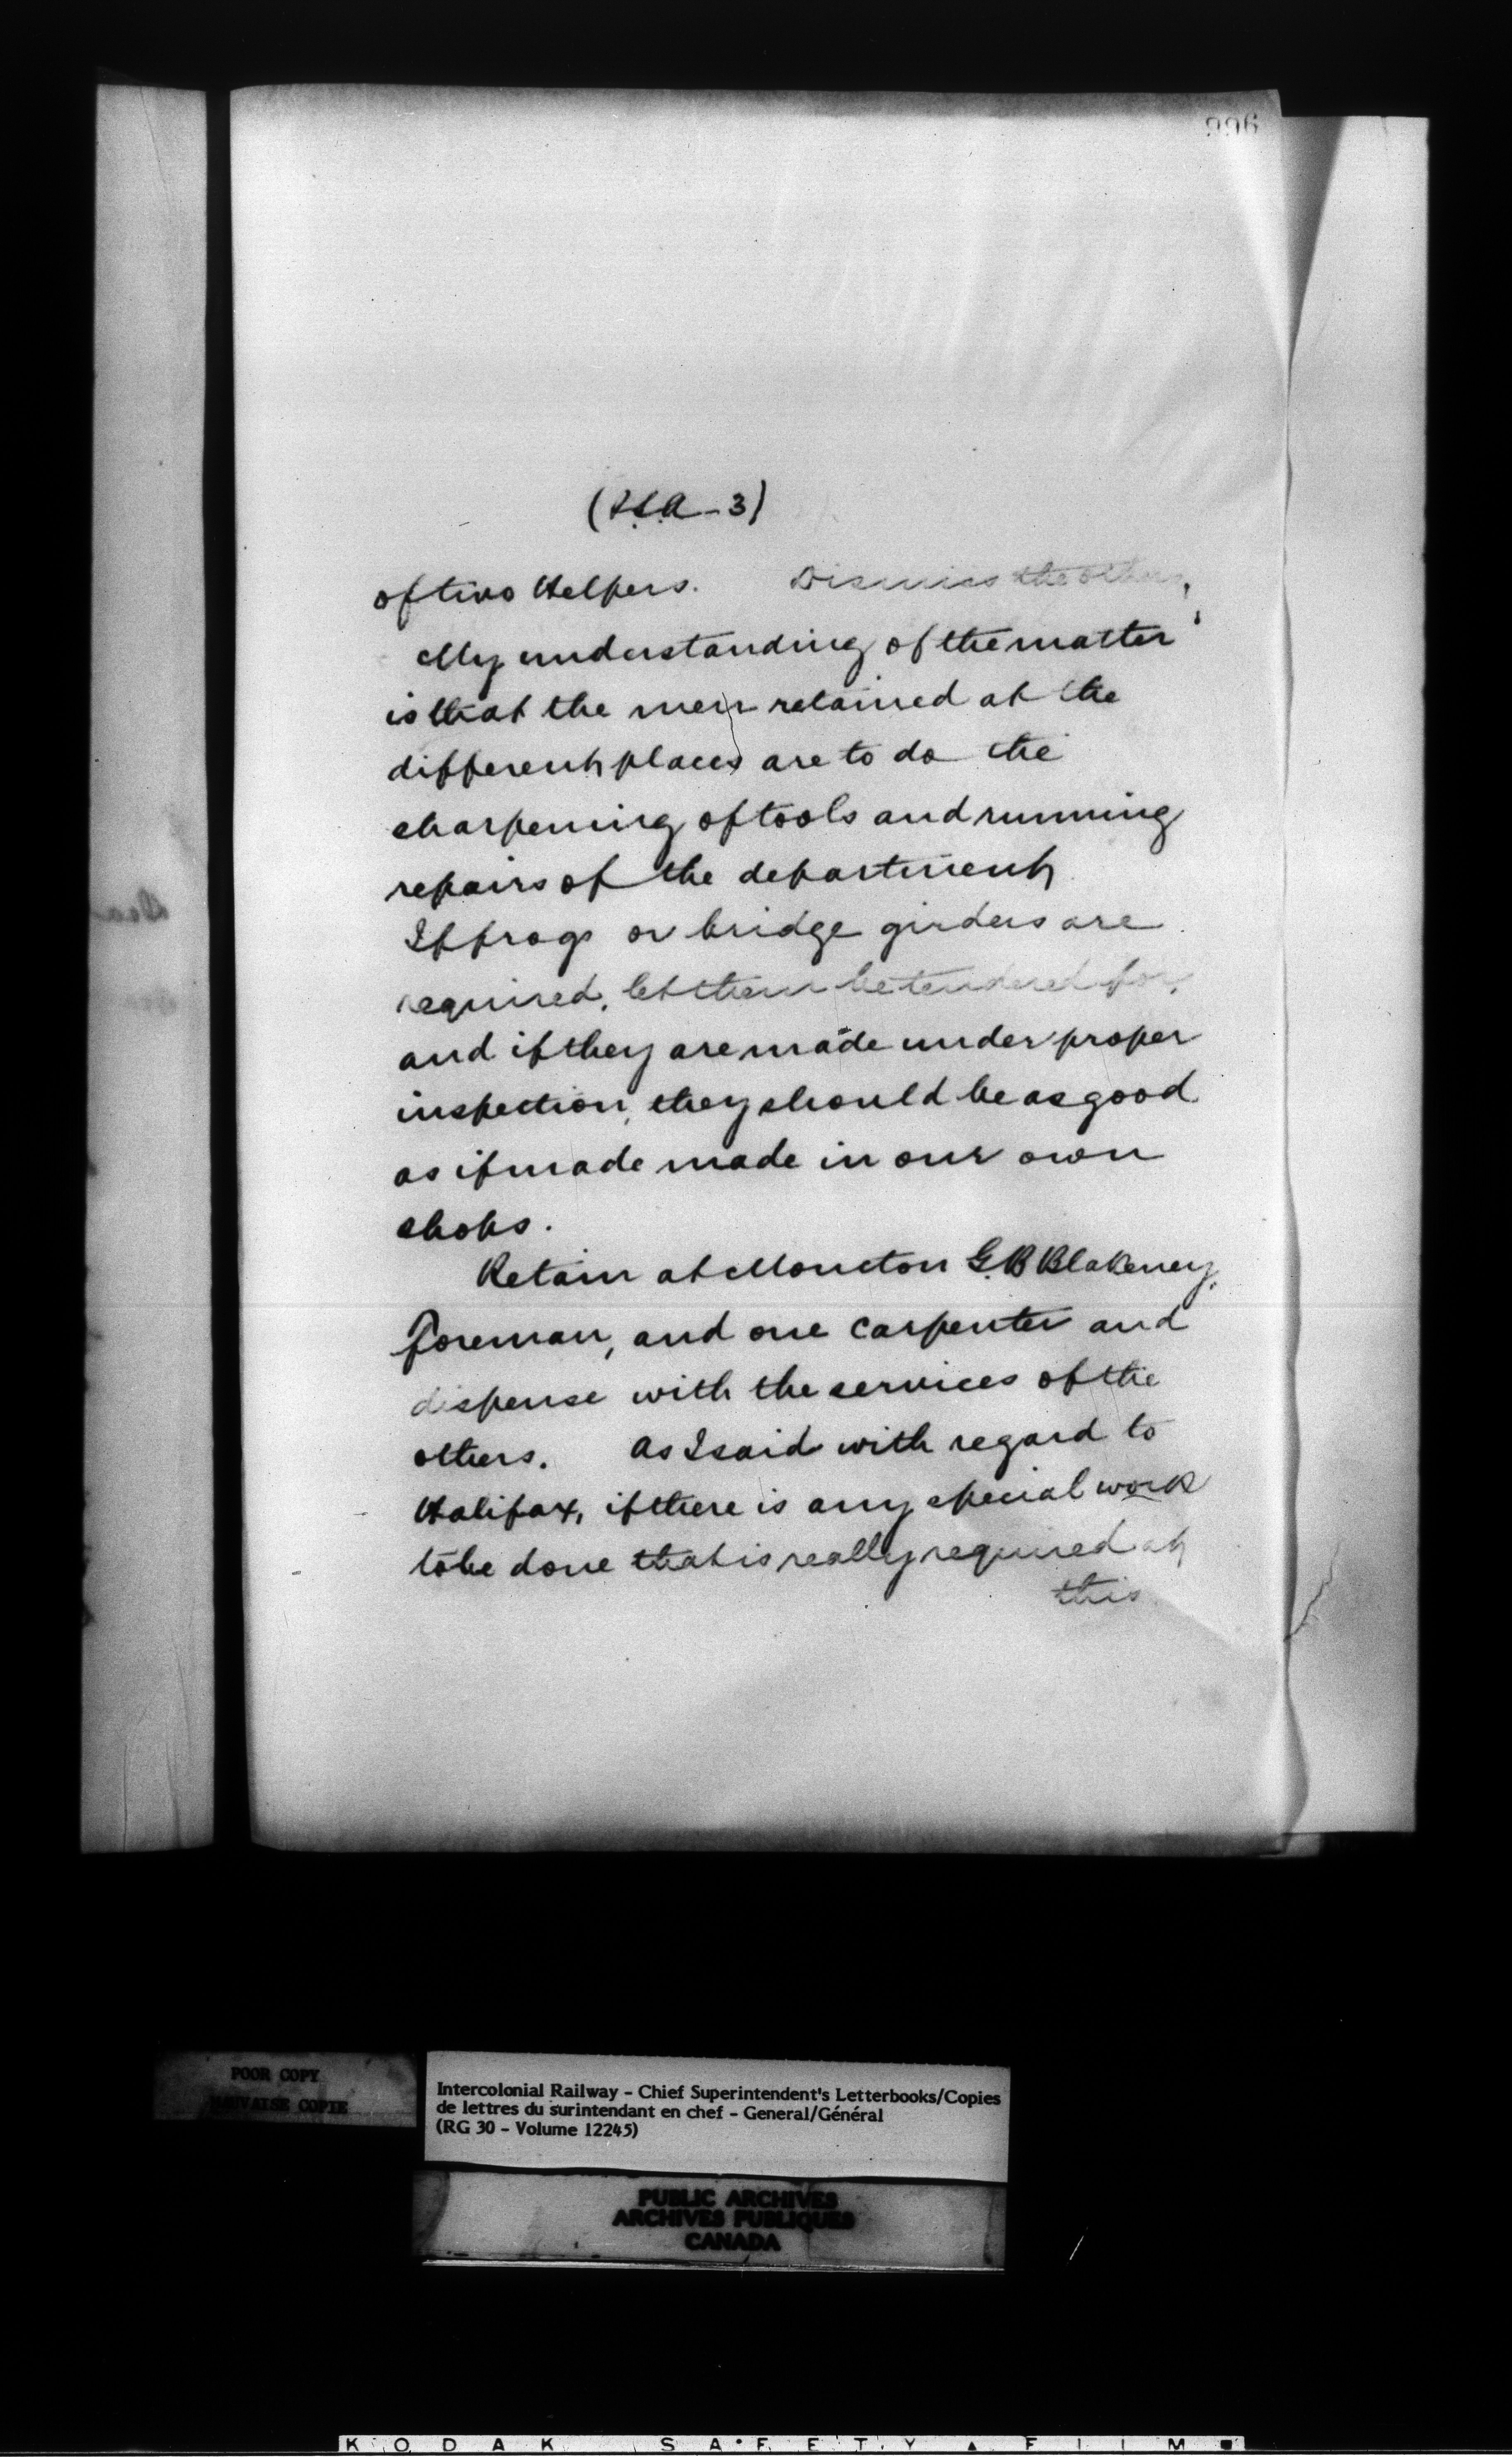 996
(P.S.A - 3)
of two Helpers. Dismiss the others,
My understanding of the matter
is that the men retained at the
different places are to do the
sharpening of tools and running
repairs of the department
If frogs or bridge girders are
required, let them be tendered for,
and if they are made under proper
inspection, they should be as good
as if made made in our own
shops.
Retain at Moncton G.B Blakeney,
Foreman, and one carpenter and
dispense with the services of the
others. As I said with regard to
Halifax, if there is any special work
to be done that is really required at
this
POOR COPY
MAUVAISE COPIE
Intercolonial Railway - Chief Superintendent's Letterbooks/Copies
de lettres du surintendant en chef - General/Général
(RG 30 - Volume 12245)
PUBLIC ARCHIVES
ARCHIVES PUBLIQUES
CANADA
KODAK SAFETY FILM